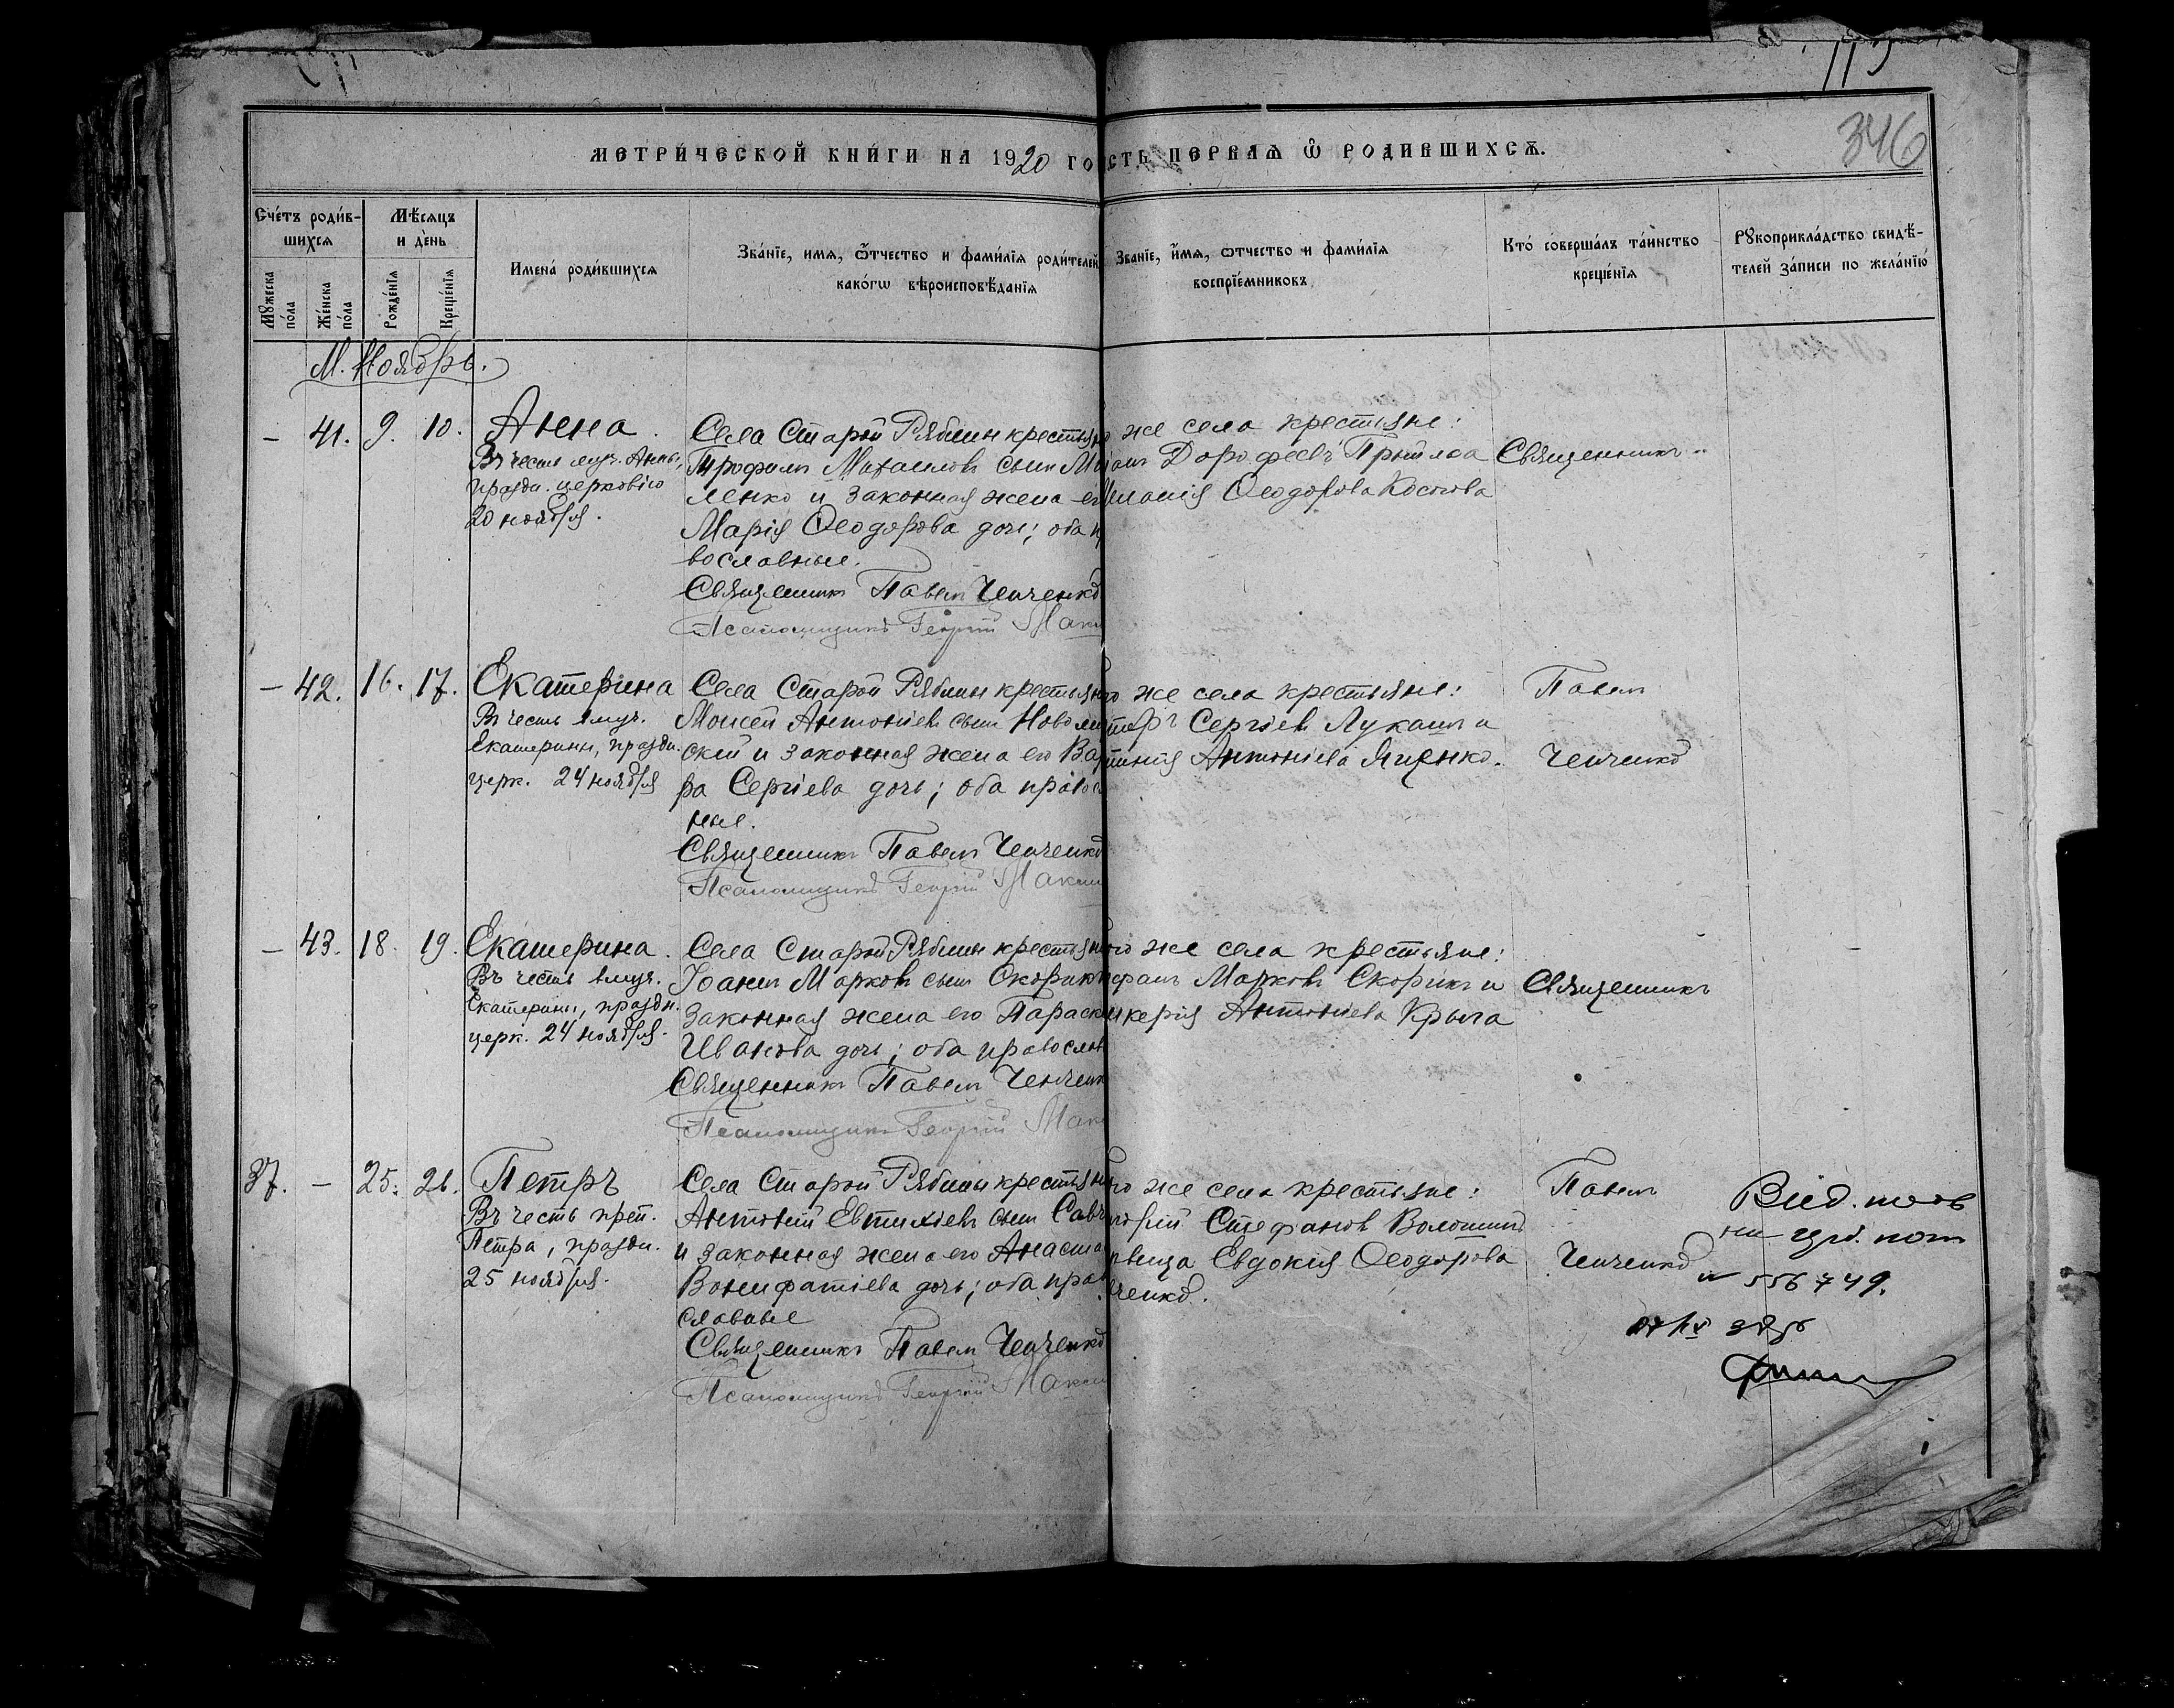 115
346
МЕТРИ́ЧЕСКОЙ КНИ́ГИ НА 1920 ГО
СТЬ ПЕРВАѦ Ѡ҆ РОДИВШИХСѦ.
Сче́тъ роди́в-
шихсѧ
Мѣ́сѧцъ
и де́нь
Мꙋ́жеска
по́ла
Же́нска
по́ла
Рожде́нїѧ
Креще́нїѧ
Имена̀ роди́вшихсѧ
Зва́нїе, имѧ, ѻ҆́тчество и фами́лїѧ роди́телей
како́гѡ вѣроисповѣ́данїѧ
Зва́нїе, и҆́мѧ, ѻтчество и фами́лїѧ
воспрїе́мниковъ
Кто̀ соверша́лъ та́инство
креще́нїѧ
Рꙋкоприкла́дство свидѣ́-
телей за́писи по жела́нїю
М. Ноябрь.
– 41. 9. 10. Анна.
Въ честь муч. Анны,
праздн. церковію
20 ноября.
Села Старой Рябины крестьян
Трофимъ Михаиловъ сынъ М
ленко и законная жена ег
Марія Ѳеодорова дочь; оба п
вославные.
Священникъ Павелъ Ченченко
Псаломщикъ Георгій Мак
же села крестьяне:
Дорофеевъ Прытла
Ѳеодорова Костова
Священникъ
– 42. 16. 17. Екатерина
Въ честь вмуч.
Екатерины, праздн.
церк. 24 ноября
Села Старой Рябины крестьян
Моисей Антоніевъ сынъ Новом
ский и законная жена его Вар
ра Сергіева дочь; оба правос
ные.
Священникъ Павелъ Ченченко
Псаломщикъ Георгій Мак
го же села крестьяне:
Сергіевъ Лукашъ и
Антоніева Яценко.
Павелъ
Ченченко
– 43. 18. 19. Екатерина.
Въ честь вмуч.
Екатерины, праздн.
церк. 24 ноября.
Села Старой Рябины крестьян
Іоаннъ Марковъ сынъ Скорик
законная жена его Параск
Иванова дочь; оба православ
Священникъ Павелъ Ченченк
Псаломщикъ Георгій Мак
го же села крестьяне:
фанъ Марковъ Скорикъ и
керія Антоніева Крыга
Священникъ
37. – 25. 26. Петръ
Въ честь преп.
Петра, праздн.
25 ноября.
Села Старой Рябины крестьян
Антоній Евтихіевъ сынъ Савч
и законная жена его Анаста
Вонифатіева дочь; оба прав
славные
Священникъ Павелъ Ченченко
Псаломщикъ Георгій Мак
го же села крестьяне:
Стефановъ Волошинъ
вица Евдокія Ѳеодорова
ченко.
Павелъ
Ченченко
556749.